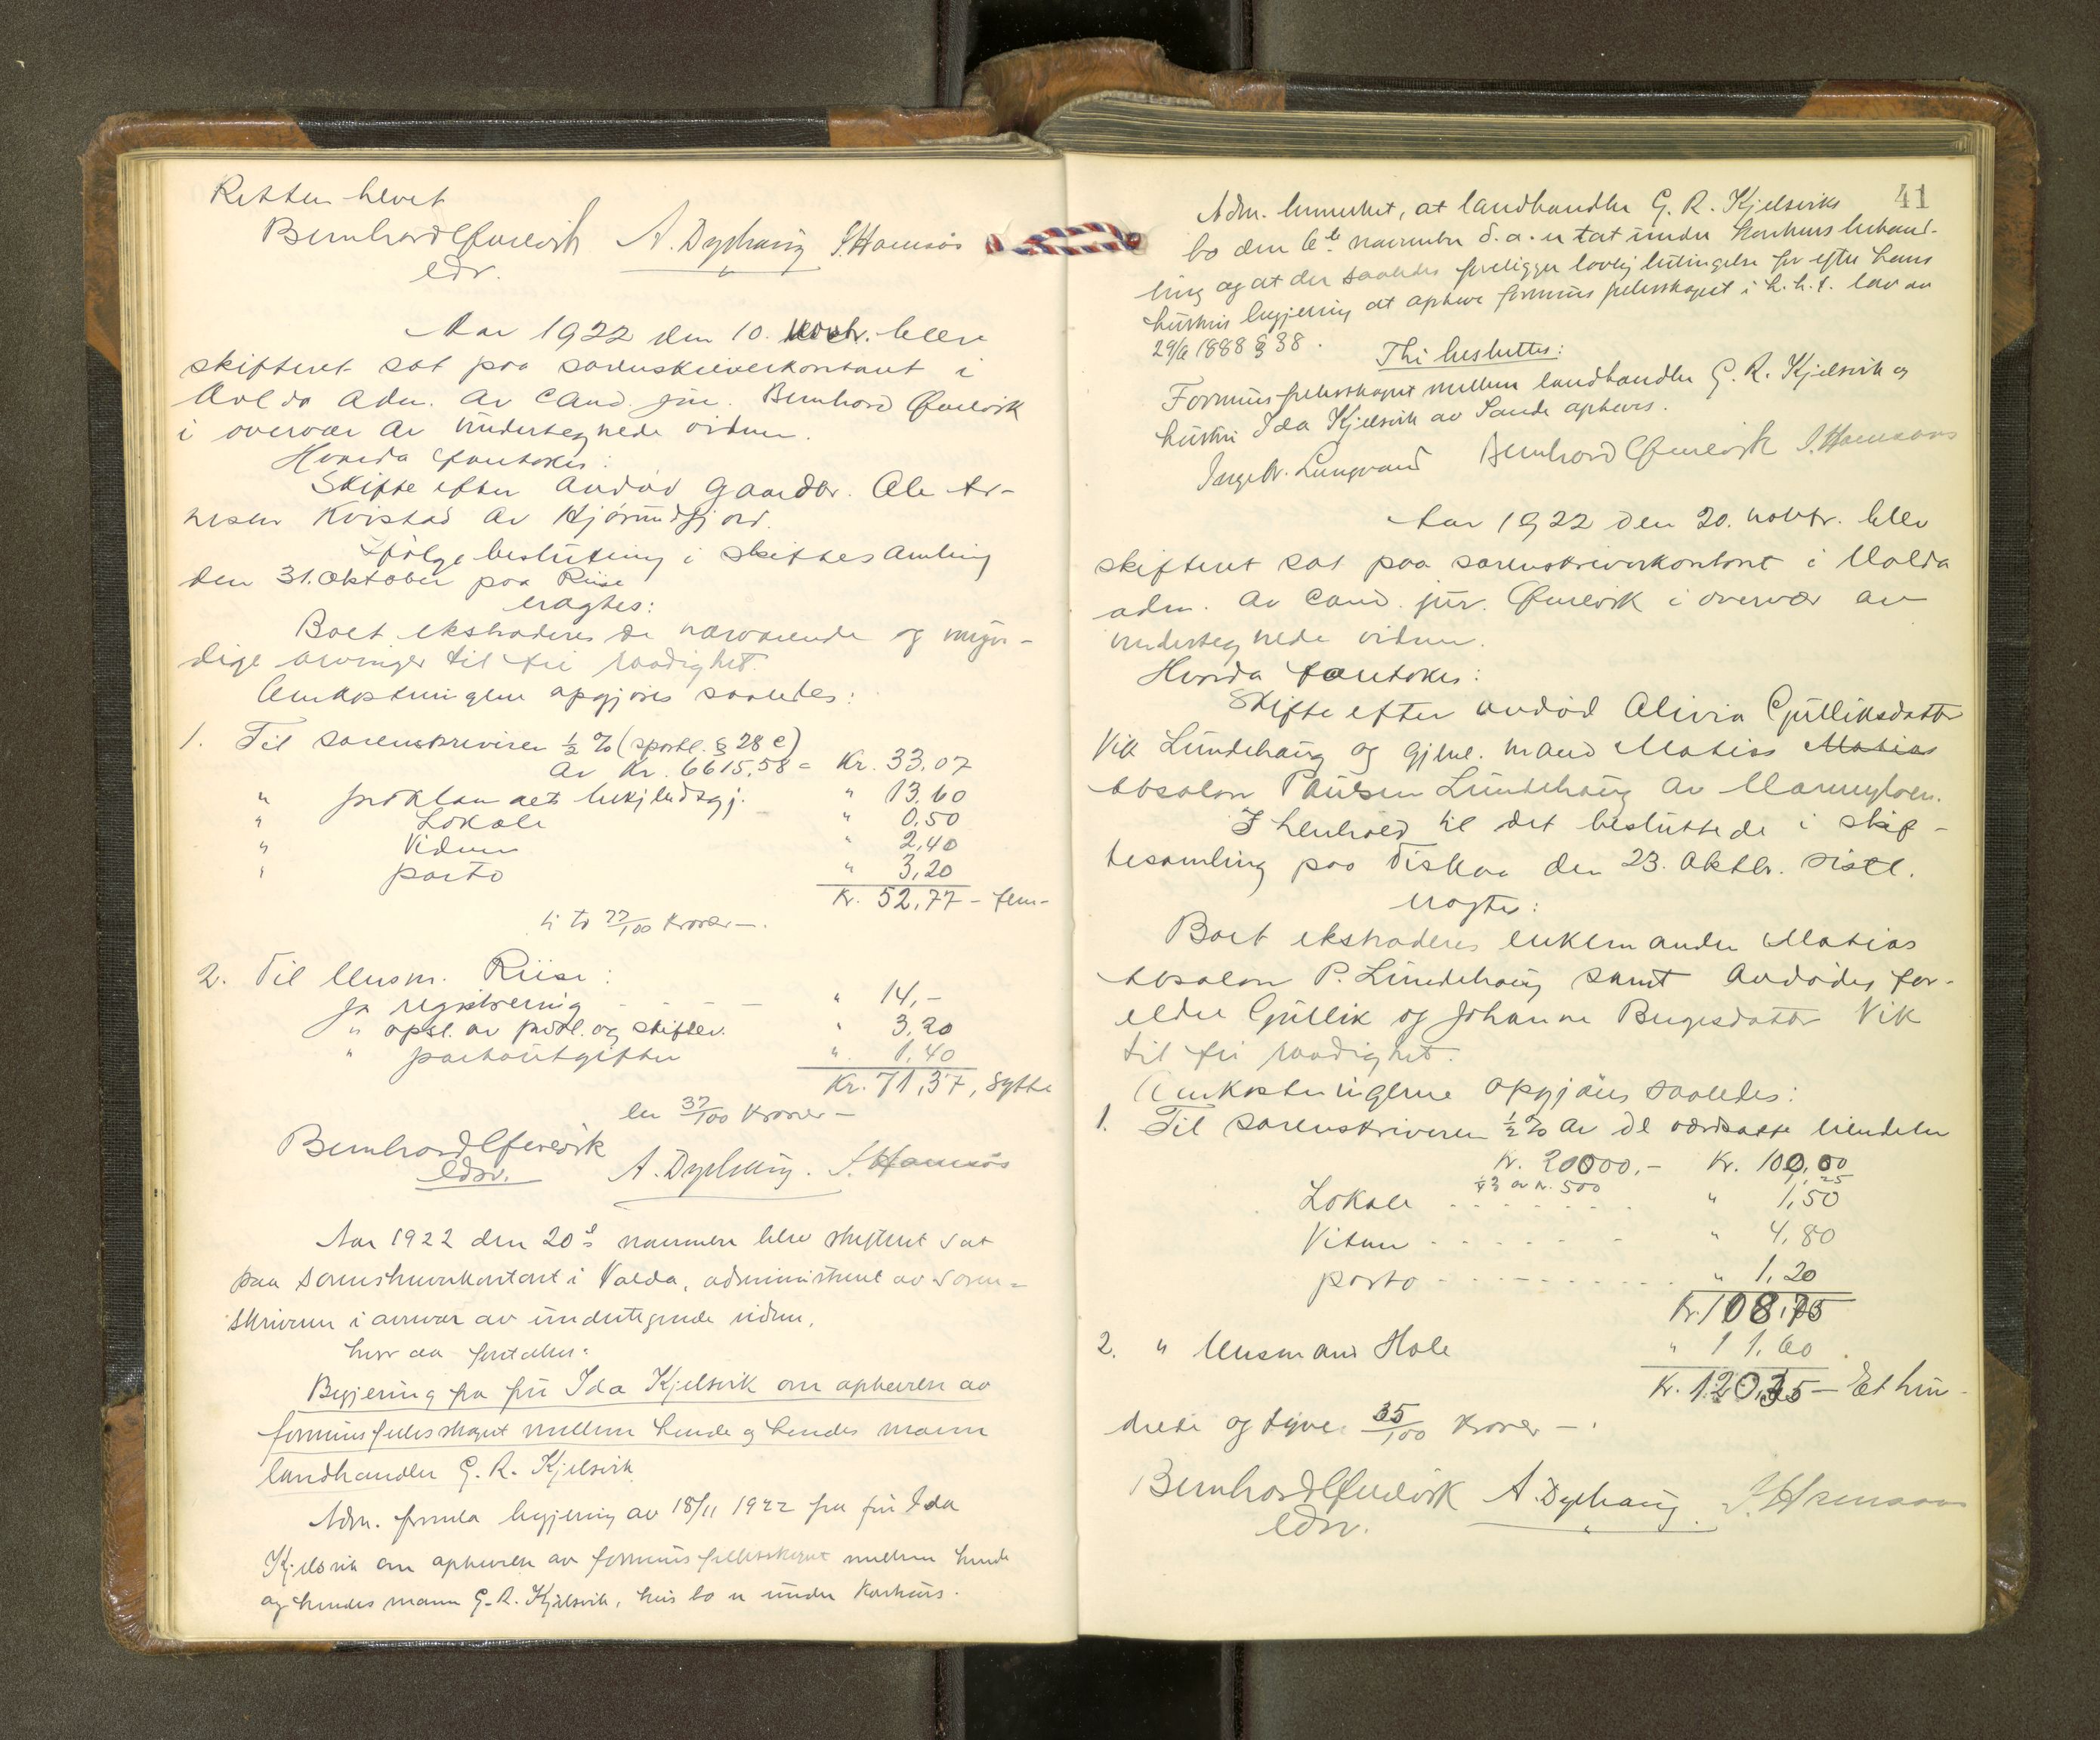 Retten hævet
Bernhard A. Dyphaug S. Hamsøs
edsv.
Aar 1922 den 10. novbr. blev
skifteret sat paa sorenskriverkontoret i
Volda adm. av cand. jur. Bernhard
i overvær av undertegnede vidner.
Hvorda foretokes:
Skifte efter avdød gaardbr. Ole Ar-
nesen Kvistad av Hjørundfjord.
Ifølge beslutning i skiftesamling
den 31. oktober paa Riise
eragtes:
Boet ekstraderes de nærværende og myn-
dige arvinger til fri raadighet.
Omkostningene opgjøres saaledes:
1. Til sorenskriveren ½ % (sportl. § 28 c)
av Kr. 6615,58 = Kr. 33,07
" proklam aets bekjendtgj. " 13,60
" Lokale " 0,50
" Vidner " 2,40
" porto " 3,20
Kr. 52,77 - fem-
ti to 77/100 kroner —.
2. Til lensm. Riise:
for registrering - - - - " 14,-
" opsl. av prokl. og skiftev. " 3,20
" portoutgifter " 1,40
Kr. 71,37, sytti
en 37/100 kroner —
Bernhard A. Dyphaug. S. Hamsøs
edsv.
Aar 1922 den 20de november blev skifteret sat
paa sorenskriverkontoret i Volda, administreret av soren=
skriveren i overvær av undertegnede vidner.
Hvor da foretokes:
Begjering fra fru Ida Kjelsvik om ophævelse av
formuesfellesskapet mellem hende og hendes mann
landhandler G. R. Kjelsvik
Adm. fremla begjering av 18/11 1922 fra fru Ida
Kjelsvik om ophævelse av formuesfellesskapet mellem hende
og hendes mann G. R. Kjelsvik, hvis bo er under konkurs.
41
Adm. bemerket, at landhandler G. R. Kjelsviks
bo den 6te november d. a. er tat under konkursbehand-
ling og at der saaledes foreligger lovlig betingelse for efter hans
hustrus begjering at ophæve formuesfellesskapet i h. h. t. lov av
29/6 1888 § 38.
Thi besluttes:
Formuesfellesskapet mellem landhandler G. R. Kjelsvik og
hustru Ida Kjelsvik av Sande ophæves.
Ingebr. Bernhard S. Hamsøs
Aar 1922 den 20. novbr. blev
skifteret sat paa sorenskriverkontoret i Volda
adm. av cand. jur. i overvær av
undertegnede vidner.
Hvorda foretokes:
Skifte efter avdød Olivia Gulliksdatter
Vik Lundehaug og gjenl. mand Matias Matias
Absalon Paulsen Lundehaug av
I henhold til det besluttede i skif-
tesamling paa Fiskaa den 23. oktbr. sistl.
eragtes:
Boet ekstraderes enkemanden Matias
Absalon P. Lundehaug samt avdødes for-
eldre Gullik og Johanne Bergesdatter Vik
til fri raadighet.
Omkostningerne opgjøres saaledes:
1. Til sorenskriveren ½ % av de værdsatte eiendeler
Kr. 20000,- Kr. 100,00
av kr. 500 1,25
Lokale . . . . . . . . " 1,50
Vitner - - - - - - " 4,80
porto - - - - - - - - " 1,20
Kr. 108,75
2. " lensmand Hole " 11,60
Kr. 120,35 — Et hun-
drede og tyve 35/100 kroner —.
Bernhard A. Dyphaug. S. Hamsøs
edsv.